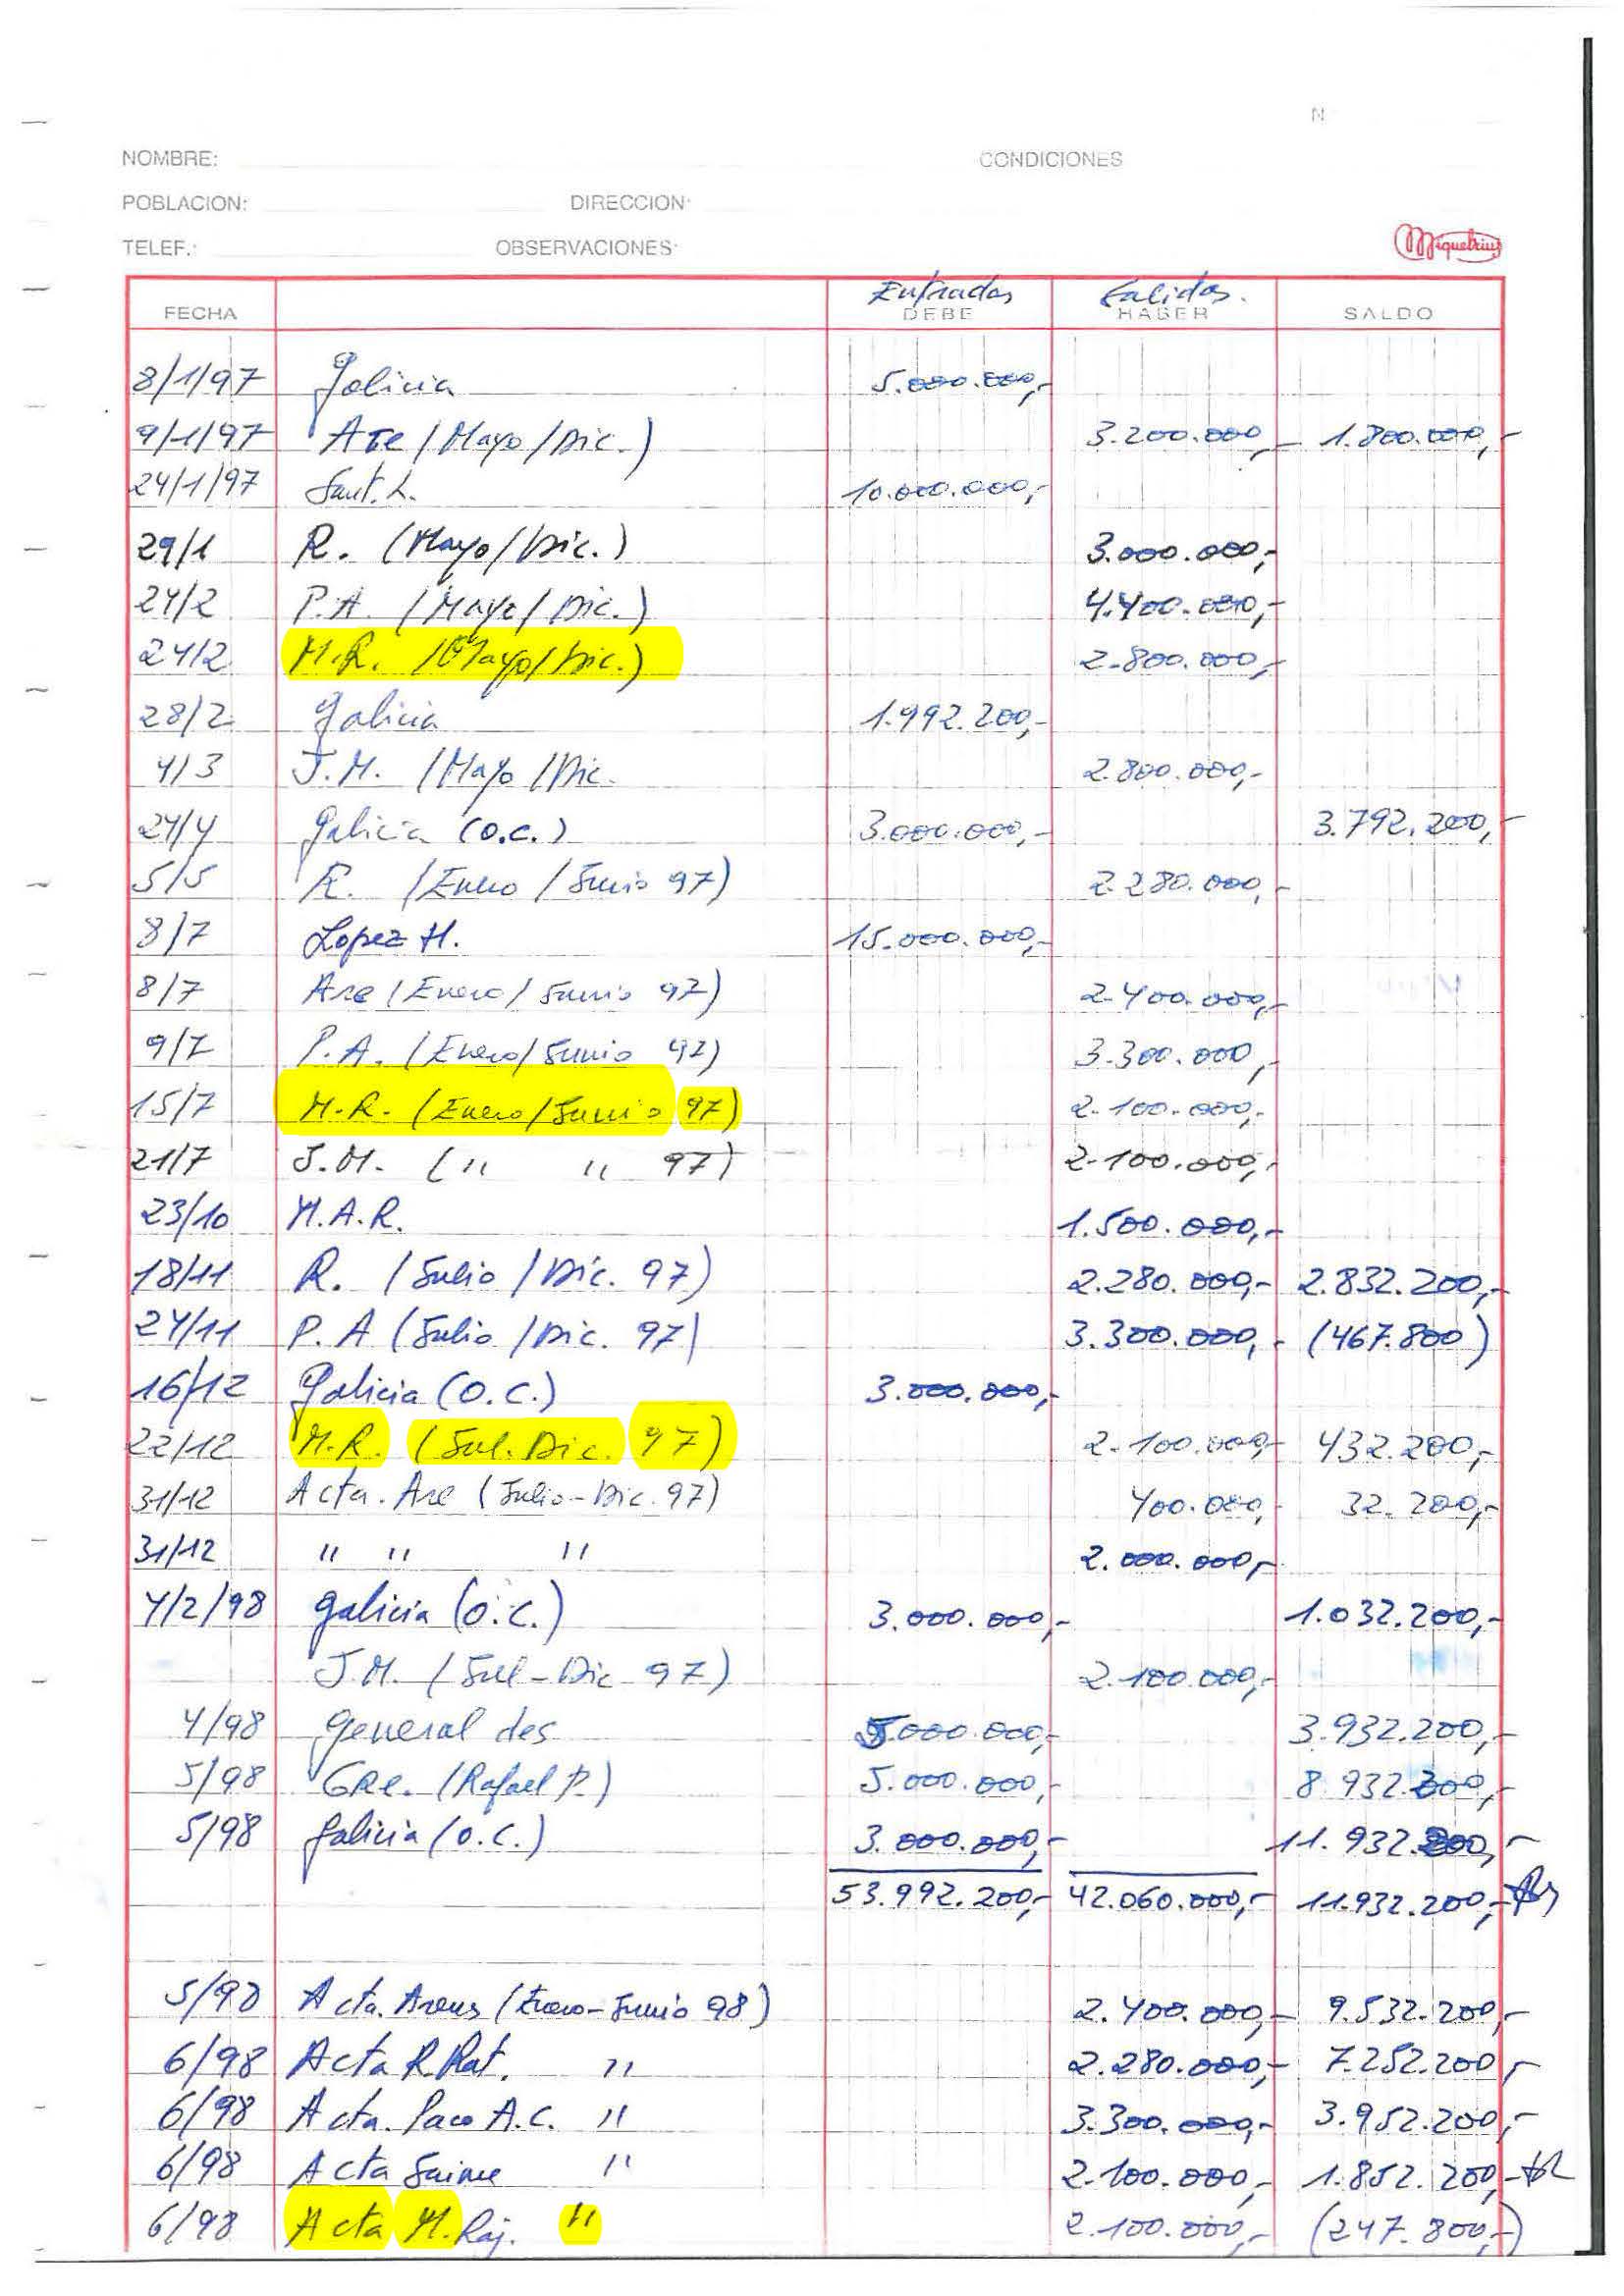 N
NOMBRE: CONDICIONES
POBLACION: DIRECCION:
TELEF.: OBSERVACIONES:
Miquelrius
Entradas Salidas.
FECHA DEBE HABER SALDO
8/1/97 Galicia 5.000.000,-
9/1/97 Are (Mayo/Dic.) 3.200.000,- 1.800.000,-
24/1/97 Sant. L. 10.000.000,-
29/1 R. (Mayo/Dic.) 3.000.000,-
24/2 P.A. (Mayo/Dic.) 4.400.000,-
24/2 M.R. (Mayo/Dic.) 2.800.000,-
28/2 Galicia 1.992.200,-
4/3 J.M. (Mayo/Dic. 2.800.000,-
24/4 Galicia (O.C.) 3.000.000,- 3.792.200,-
5/5 R. (Enero/Junio 97) 2.280.000,-
8/7 Lopez H. 15.000.000,-
8/7 Are (Enero/Junio 97) 2.400.000,-
9/7 P.A. (Enero/Junio 97) 3.300.000,-
15/7 M.R. (Enero/Junio 97) 2.100.000,-
21/7 J.M. (" " 97) 2.100.000,-
23/10 M.A.R. 1.500.000,-
18/11 R. (Julio/Dic. 97) 2.280.000,- 2.832.200,-
24/11 P.A (Julio/Dic. 97) 3.300.000,- (467.800)
16/12 Galicia (O.C.) 3.000.000,-
22/12 M.R. (Jul. Dic. 97) 2.100.000,- 432.200,-
31/12 Acta. Are (Julio-Dic. 97) 400.000,- 32.200,-
31/12 " " " 2.000.000,-
4/2/98 Galicia (O.C.) 3.000.000,- 1.032.200,-
J.M. (Jul-Dic 97) 2.100.000,-
4/98 General des 5.000.000,- 3.932.200,-
5/98 (Rafael P.) 5.000.000,- 8.932.200,-
5/98 Galicia (O.C.) 3.000.000,- 11.932.200,-
53.992.200,- 42.060.000,- 11.932.200,-
5/98 Acta. Arenas (Enero-Junio 98) 2.400.000,- 9.532.200,-
6/98 Acta R. Rat. " 2.280.000,- 7.252.200,-
6/98 Acta. Paco A.C. " 3.300.000,- 3.952.200,-
6/98 Acta Jaime " 2.100.000,- 1.852.200,-
6/98 Acta M. Raj. " 2.100.000,- (247.800,-)